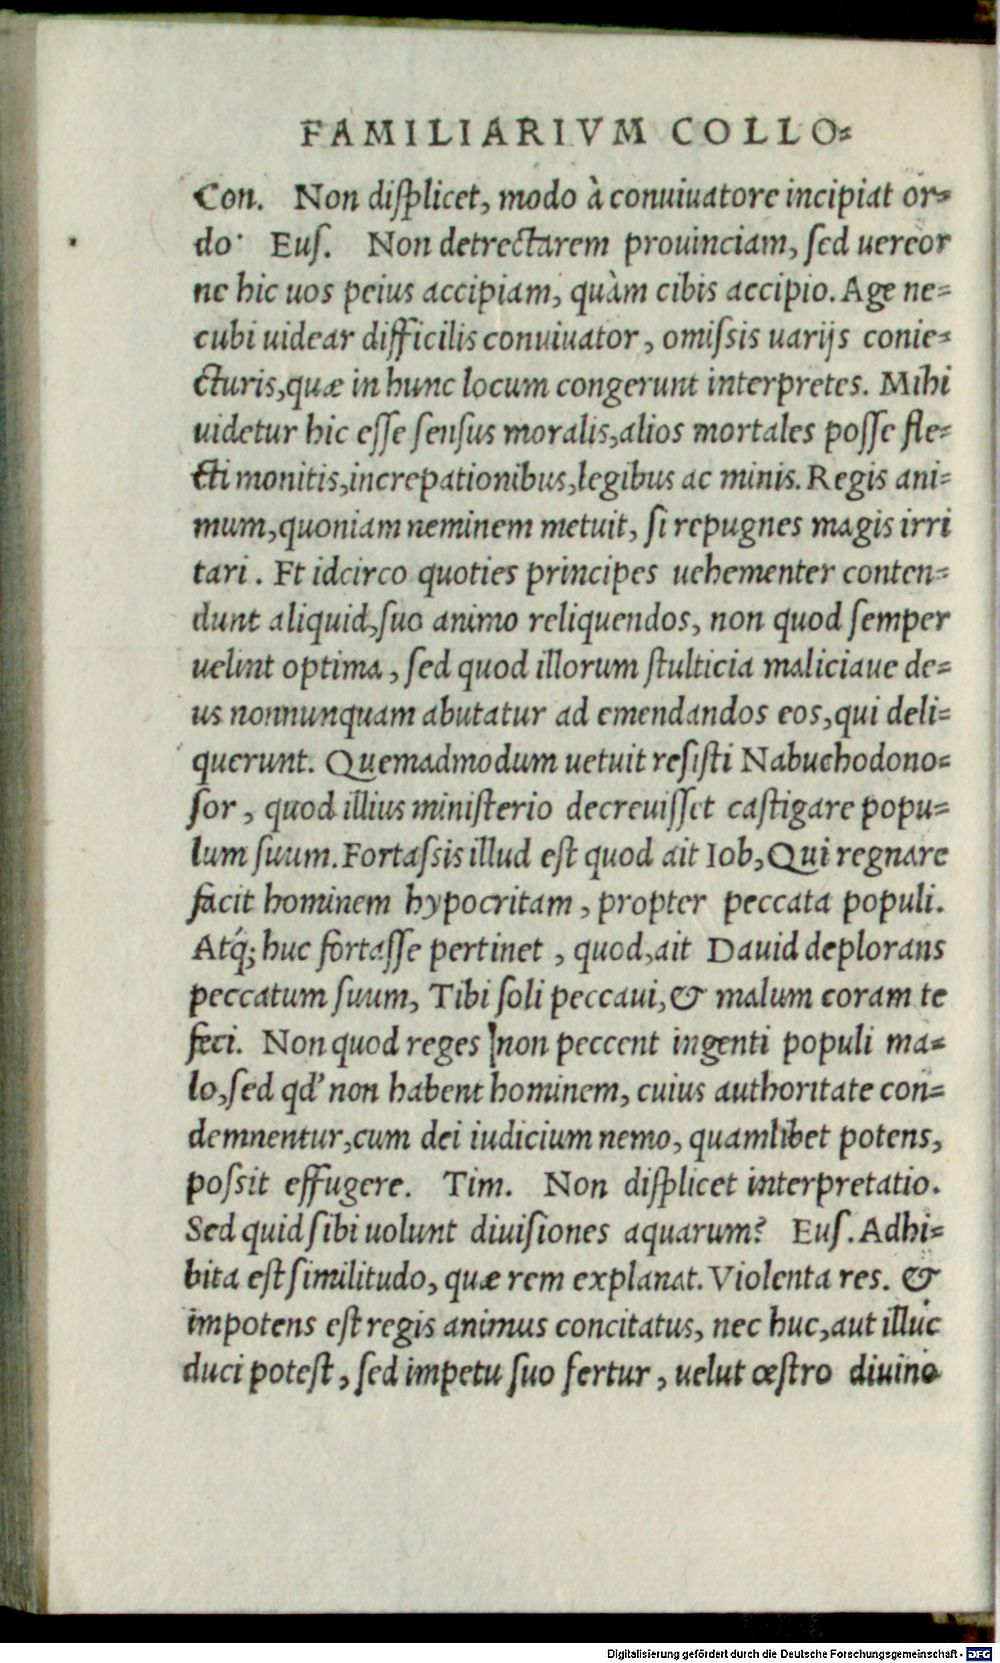 FAMILIARIVM COLLO=
Con. Non diſplicet, modo à conuiuatore incipiat or=
do. Euſ. Non detrectarem prouinciam, ſed uereor
ne hic uos peius accipiam, quàm cibis accipio. Age ne=
cubi uidear difficilis conuiuator, omiſsis uarijs conie=
cturis, quæ in hunc locum congerunt interpretes. Mihi
uidetur hic eſſe ſenſus moralis, alios mortales poſſe fle=
cti monitis, increpationibus, legibus ac minis. Regis ani=
mum, quoniam neminem metuit, ſi repugnes magis irri
tari. Et idcirco quoties principes uehementer conten=
dunt aliquid, ſuo animo reliquendos, non quod ſemper
uelint optima, ſed quod illorum ſtulticia maliciaue de=
us nonnunquam abutatur ad emendandos eos, qui deli=
querunt. Quemadmodum uetuit reſiſti Nabuchodono=
ſor, quod illius miniſterio decreuiſſet caſtigare popu=
lum ſuum. Fortaſsis illud eſt quod ait Iob, Qui regnare
facit hominem hypocritam, propter peccata populi.
Atq́; huc fortaſſe pertinet, quod, ait Dauid deplorans
peccatum ſuum, Tibi ſoli peccaui, & malum coram te
feci. Non quod reges non peccent ingenti populi ma=
lo, ſed qd' non habent hominem, cuius authoritate con=
demnentur, cum dei iudicium nemo, quamlibet potens,
poſsit effugere. Tim. Non diſplicet interpretatio.
Sed quid ſibi uolunt diuiſiones aquarum? Euſ. Adhi=
bita eſt ſimilitudo, quæ rem explanat. Violenta res. &
impotens eſt regis animus concitatus, nec huc, aut illuc
duci poteſt, ſed impetu ſuo fertur, uelut œſtro diuino
Digitalisierung gefördert durch die Deutsche Forschungsgemeinschaft - DFG